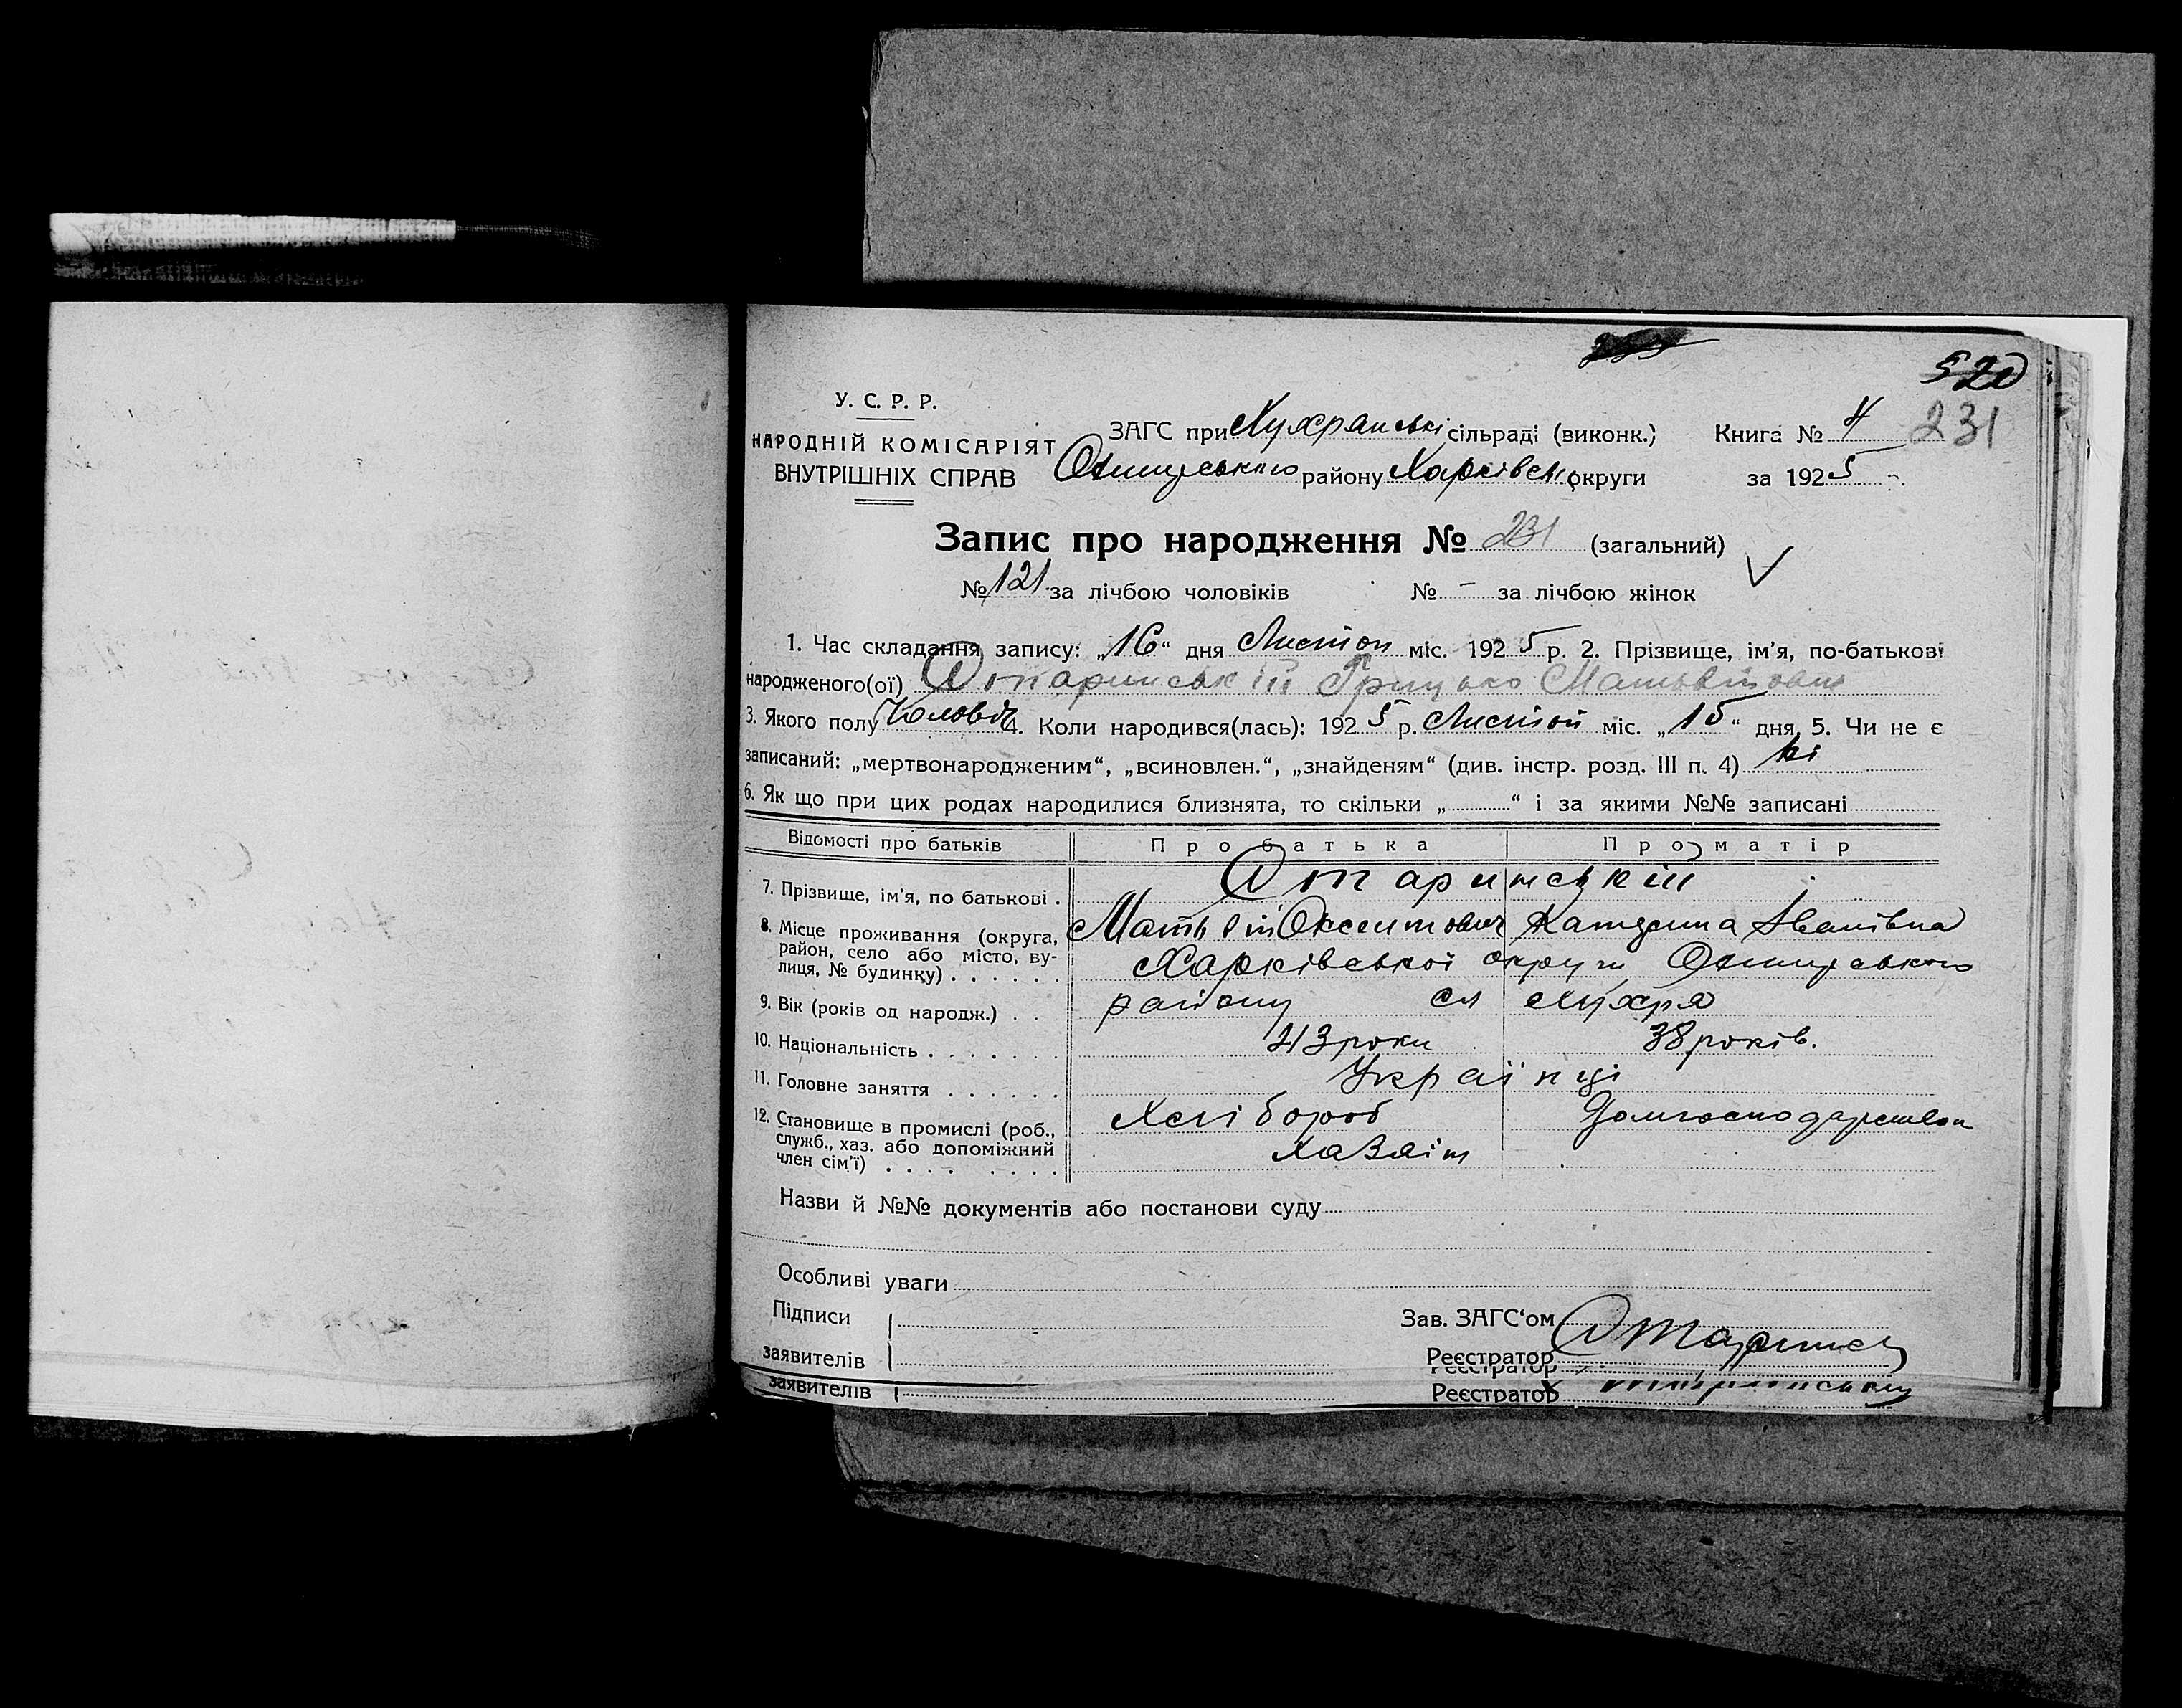 520
У. С. Р. Р.
НАРОДНІЙ КОМІСАРІЯТ
ВНУТРІШНІХ СПРАВ
ЗАГС при Кухранські сільраді (виконк.) Книга № 4 231
району Харківськ округи за 1925 р.
Запис про народження № 231 (загальний)
№ 121 за лічбою чоловіків № – за лічбою жінок
1. Час складання запису: „16“ дня Листоп міс. 1925 р. 2. Прізвище, ім'я, по-батькові
народженого(ої) Грицько
3. Якого полу Чолові 4. Коли народився(лась): 1925 р. Листоп міс. „15“ дня, 5. Чи не є
записаний: „мертвонародженим“, „всиновлен.“, „знайденям“ (див. інстр. розд. III п. 4) ні
6. Як що при цих родах народилися близнята, то скільки „ “ і за якими №№ записані
Відомості про батьків Про батька Про матір
7. Прізвище, ім'я, по батькові .
Катерина Іванівна
8. Місце проживання (округа, район, село або місто, вулиця, № будинку) . . . . . .
Харківської округи
району сл Кухря
9. Вік (років од народж.) . . 43 роки 38 років.
10. Національність . . . . . . . Українці
11. Головне заняття . . . . . . Хлібороб
12. Становище в промислі (роб., служб., хаз. або допоміжний член сім'ї) . . . . . . . . хазяін
Назви й №№ документів або постанови суду
Особливі уваги
Підписи
заявителів
Зав. ЗАГС‘ом
Реєстратор
Реєстратор
заявителів
Реєстратор